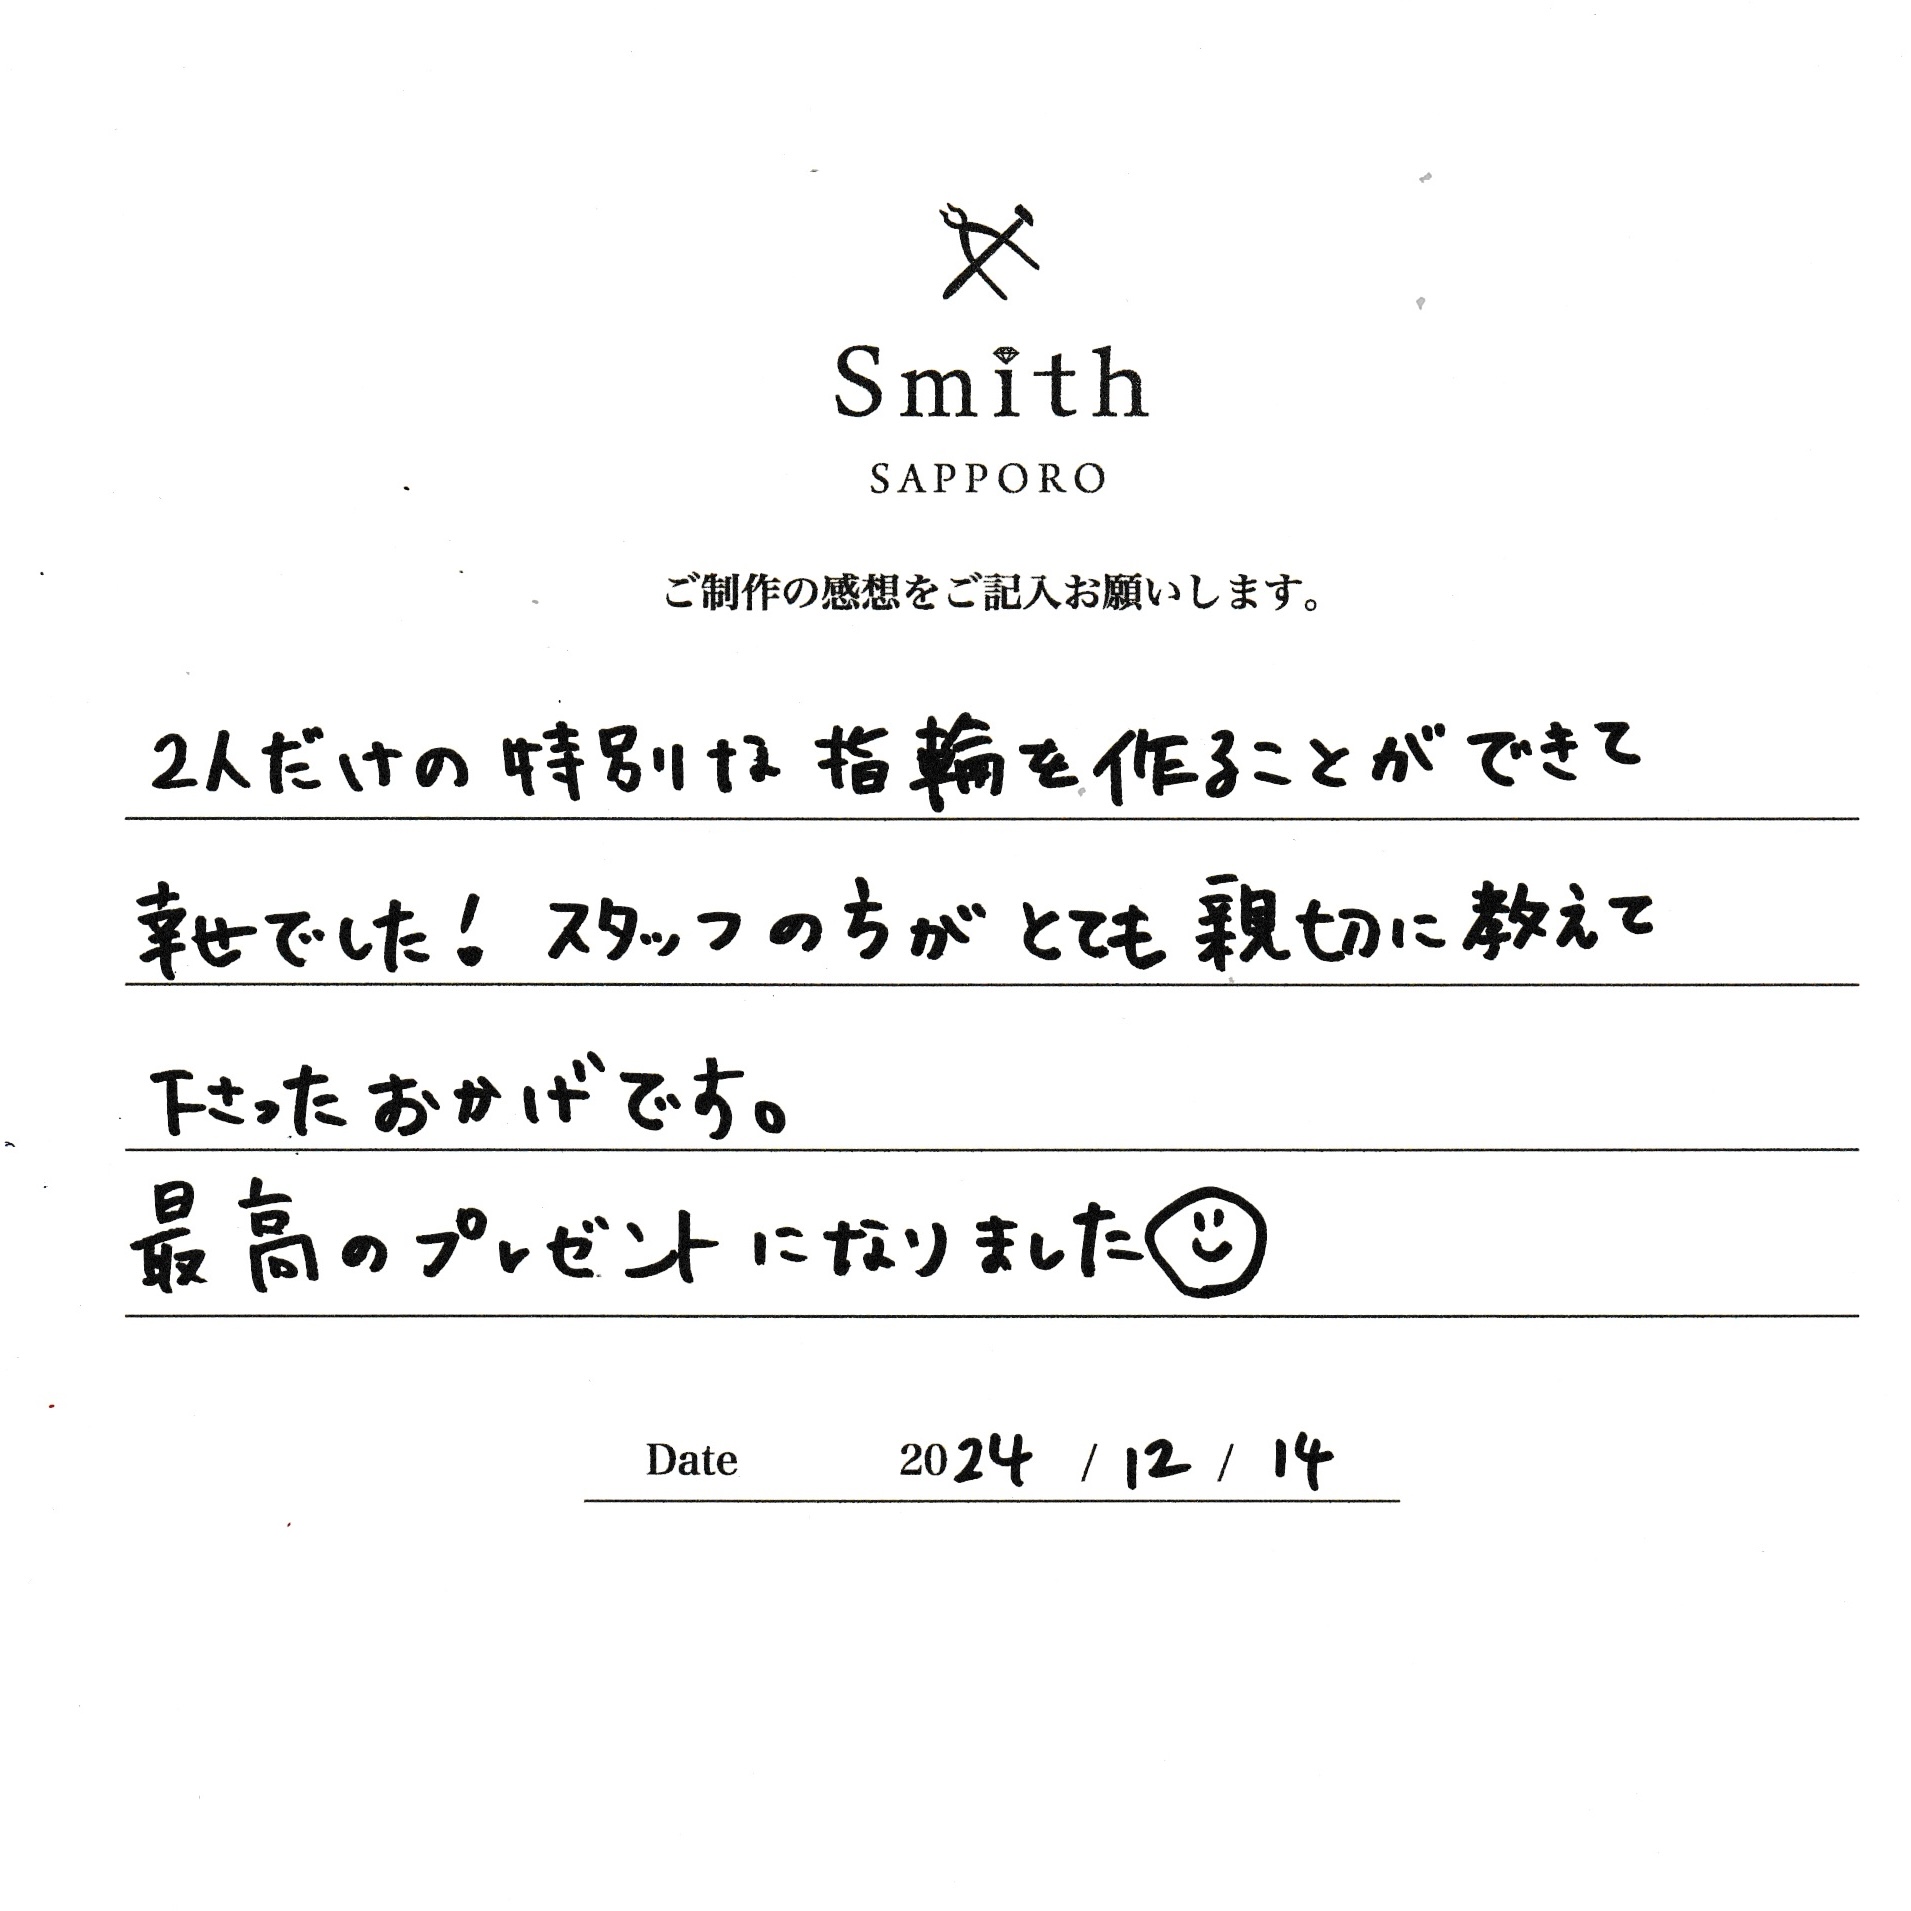 Smith
SAPPORO
ご制作の感想をご記入お願いします。
2人だけの特別な指輪を作ることができて
幸せでした! スタッフの方がとても親切に教えて
下さったおかげです。
最高のプレゼントになりました
Date 2024 / 12 / 14